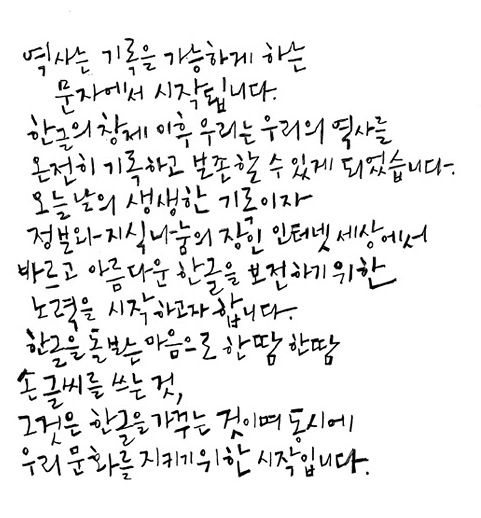 역사는 기록을 가능하게 하는
문자에서 시작됩니다.
한글의 창제 이후 우리는 우리의 역사를
온전히 기록하고 보존할 수 있게 되었습니다.
오늘날의 생생한 기록이자
정보와 지식나눔의 장인 인터넷 세상에서
바르고 아름다운 한글을 보전하기 위한
노력을 시작하고자 합니다.
한글을 돌보는 마음으로 한땀 한땀
손글씨를 쓰는 것,
그것은 한글을 가꾸는 것이며 동시에
우리 문화를 지키기 위한 시작입니다.